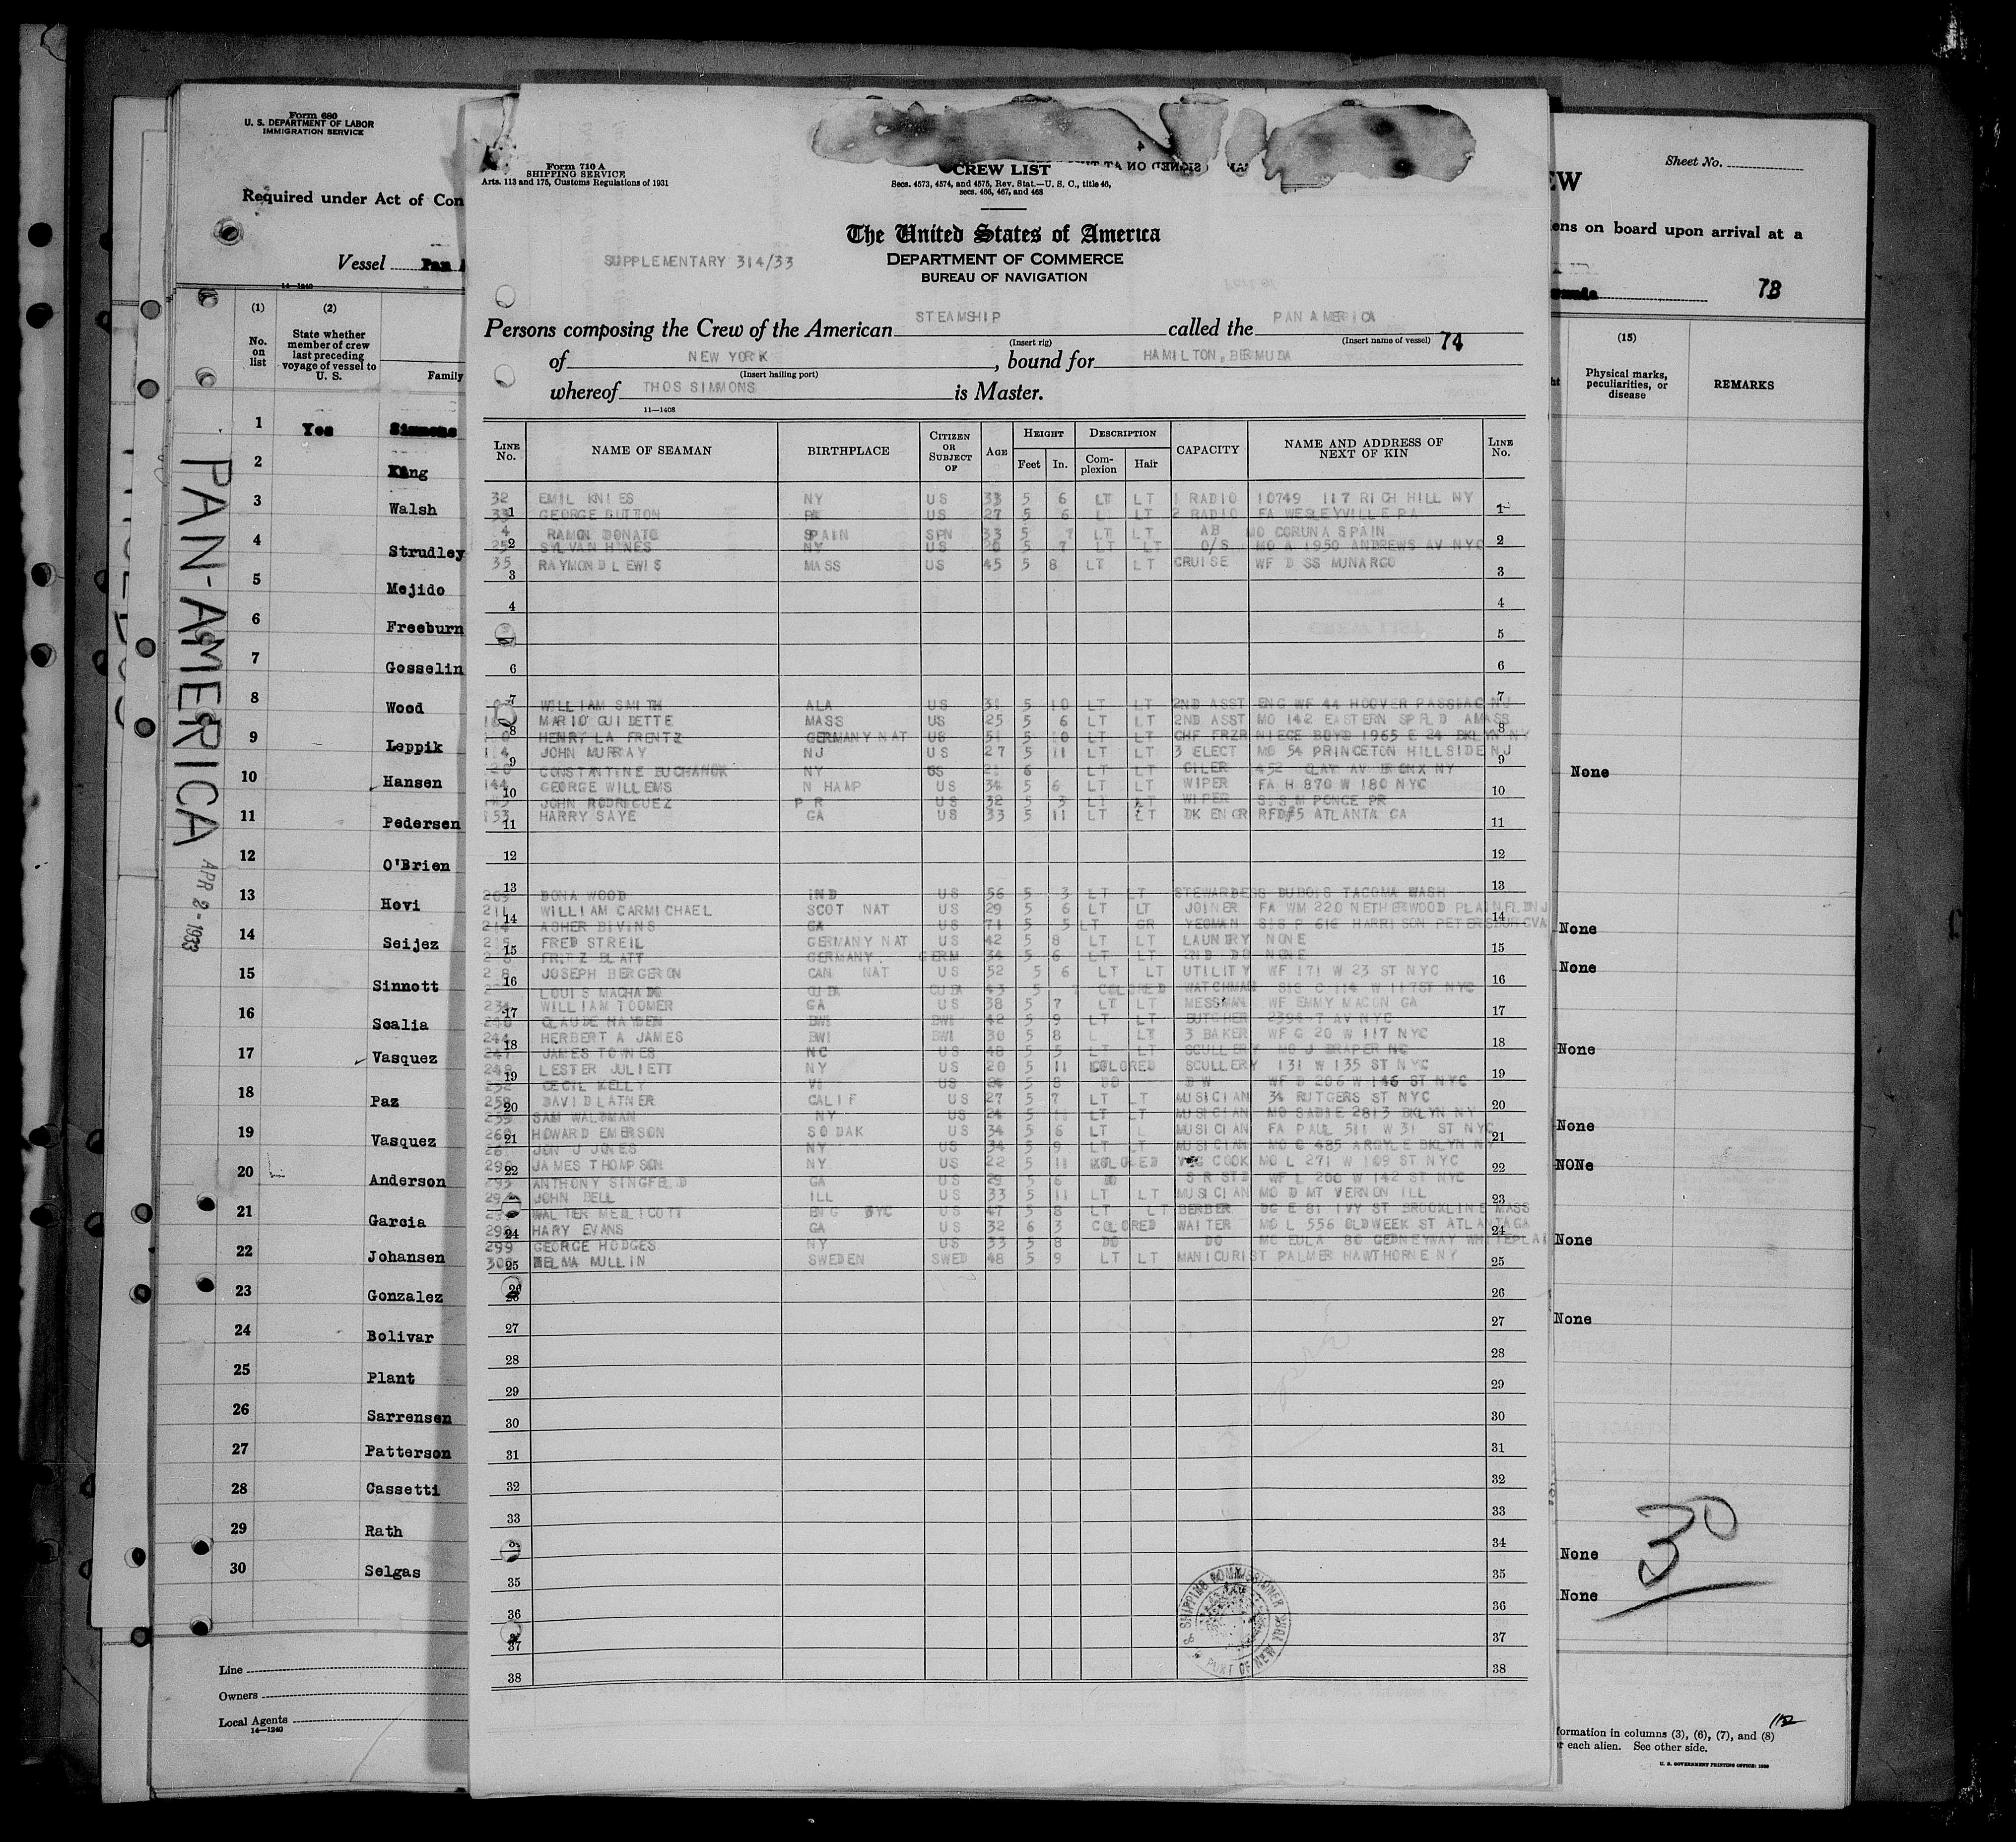 Form 680
U. S. DEPARTMENT OF LABOR
IMMIGRATION SERVICE
Required under Act of Con
Vessel Pan A
14—1240
(1) (2)
No. on list
State whether member of crew last preceding voyage of vessel to U. S.
Family
1 Yes Simmons
2 King
3 Walsh
4 Strudley
5 Mejido
6 Freeburn
7 Gosselin
8 Wood
9 Leppik
10 Hansen
11 Pedersen
12 O'Brien
13 Hovi
14 Seijez
15 Sinnott
16 Scalia
17 Vasquez
18 Paz
19 Vasquez
20 Anderson
21 Garcia
22 Johansen
23 Gonzalez
24 Bolivar
25 Plant
26 Sarrensen
27 Patterson
28 Cassetti
29 Rath
30 Selgas
Line
Owners
Local Agents
14—1240
PAN-AMERICA APR 2-1933
Form 710 A
SHIPPING SERVICE
Arts. 113 and 175, Customs Regulations of 1931
CREW LIST
Secs. 4573, 4574, and 4575, Rev. Stat.—U. S. C., title 46,
secs. 466, 467, and 468
The United States of America
DEPARTMENT OF COMMERCE
BUREAU OF NAVIGATION
SUPPLEMENTARY 314/33
Persons composing the Crew of the American STEAMSHIP called the PAN AMERICA
(Insert rig) (Insert name of vessel) 74
of NEW YORK, bound for HAMILTON, BERMUDA
(Insert hailing port)
whereof THOS SIMMONS is Master.
11—1408
LINE No. NAME OF SEAMAN BIRTHPLACE CITIZEN OR SUBJECT OF AGE HEIGHT Feet In. DESCRIPTION Complexion Hair CAPACITY NAME AND ADDRESS OF NEXT OF KIN LINE No.
32 EMIL KNIES NY US 33 5 6 LT LT 1 RADIO 10749 117 RICH HILL NY
33 GEORGE DUTTON PA US 27 5 6 L LT 2 RADIO FA WESLEYVILLE PA
4 RAMON DONATO SPAIN SPN 33 5 7 LT LT AB MO CORUNA SPAIN
25 SYLVAN HINES NY US 20 5 7 LT LT O/S MO A 1950 ANDREWS AV NYC
35 RAYMOND LEWIS MASS US 45 5 8 LT LT CRUISE WF D SS MUNARGO
WILLIAM SMITH ALA US 31 5 10 LT LT 2ND ASST ENG WF 44 HOOVER PASSIAC NJ
MARIO GUIDETTE MASS US 25 5 6 LT LT 2ND ASST MO 142 EASTERN SPFLD AMASS
HENRY LA FRENTZ GERMANY NAT US 51 5 10 LT LT CHF FRZR NIECE BOYD 1965 E 24 BKLYN NY
114 JOHN MURRAY NJ US 27 5 11 LT LT 3 ELECT MO 54 PRINCETON HILLSIDE NJ
CONSTANTINE BUCHANOK NY US 21 6 LT LT OILER 452 CLAY AV BRONX NY
144 GEORGE WILLEMS N HAMP US 34 5 6 LT LT WIPER FA H 870 W 180 NYC
JOHN RODRIGUEZ P R US 32 5 3 LT LT WIPER SIS M PONCE PR
153 HARRY SAYE GA US 33 5 11 LT LT DK ENGR RFD#5 ATLANTA GA
DONA WOOD IND US 56 5 3 LT LT STEWARDESS DUBOIS TACOMA WASH
211 WILLIAM CARMICHAEL SCOT NAT US 29 5 6 LT LT JOINER FA WM 220 NETHERWOOD PLAINFLDNJ
214 ASHER BIVINS GA US 71 5 5 LT GR YEOMAN SIS P 616 HARRISON PETERSBURGVA
215 FRED STREIL GERMANY NAT US 42 5 8 LT LT LAUNDRY NONE
FRITZ BLATT GERMANY GERM 34 5 6 LT LT 2ND DO NONE
JOSEPH BERGERON CAN NAT US 52 5 6 LT LT UTILITY WF 171 W 23 ST NYC
LOUIS MACHADO CUBA CUBA 43 5 7 COLORED WATCHMAN SIS C 114 W 117ST NYC
234 WILLIAM TOOMER GA US 38 5 7 LT LT MESSMAN WF EMMY MACON GA
CLAUDE HAYDEN BWI BWI 42 5 9 LT LT BUTCHER 2394 7 AV NYC
244 HERBERT A JAMES BWI BWI 30 5 8 L LT 3 BAKER WF G 20 W 117 NYC
247 JAMES TOWNES NC US 48 5 5 LT LT SCULLERY MO J DRAPER NC
248 LESTER JULIETT NY US 20 5 11 COLORED SCULLERY 131 W 135 ST NYC
252 CECIL KELLY VI US 24 5 8 DO D W WF D 206 W 146 ST NYC
258 DAVID LATNER CALIF US 27 5 7 LT LT MUSICIAN 34 RUTGERS ST NYC
259 SAM WALDMAN NY US 24 5 11 LT LT MUSICIAN MO SADIE 2813 BKLYN NY
260 HOWARD EMERSON SO DAK US 34 5 6 LT L MUSICIAN FA PAUL 511 W 31 ST NYC
261 JON J JONES NY US 34 5 9 LT LT MUSICIAN MO C 485 ARGYLE BKLYN NY
JAMES THOMPSON NY US 22 5 11 COLORED VEG COOK MO L 271 W 109 ST NYC
293 ANTHONY SINGFELD GA US 29 5 6 DO S R STD WF L 200 W 142 ST NYC
JOHN BELL ILL US 33 5 11 LT LT MUSICIAN MO D MT VERNON ILL
WALTER MEDLICOTT ENG NYC US 47 5 8 LT LT BERBER DG E 81 IVY ST BROOKLINE MASS
298 HARY EVANS GA US 32 6 3 COLORED WAITER MO L 556 OLDWEEK ST ATLANTAGA
299 GEORGE HODGES NY US 33 5 8 DO DO MO EULA 80 GEDNEYWAY WHITEPLAI
300 HELMA MULLIN SWEDEN SWED 48 5 9 LT LT MANICURIST PALMER HAWTHORNE NY
1
2
3
4
5
6
7
8
9
10
11
12
13
14
15
16
17
18
19
20
21
22
23
24
25
26
27
28
29
30
31
32
33
34
35
36
37
38
SHIPPING COMMISSIONER
PORT OF NEW YORK
Sheet No.
EW
iens on board upon arrival at a
73
(15)
Physical marks, peculiarities, or disease
REMARKS
None
None
None
None
None
NONe
None
None
None
None
30
112
formation in columns (3), (6), (7), and (8)
or each alien. See other side.
U. S. GOVERNMENT PRINTING OFFICE